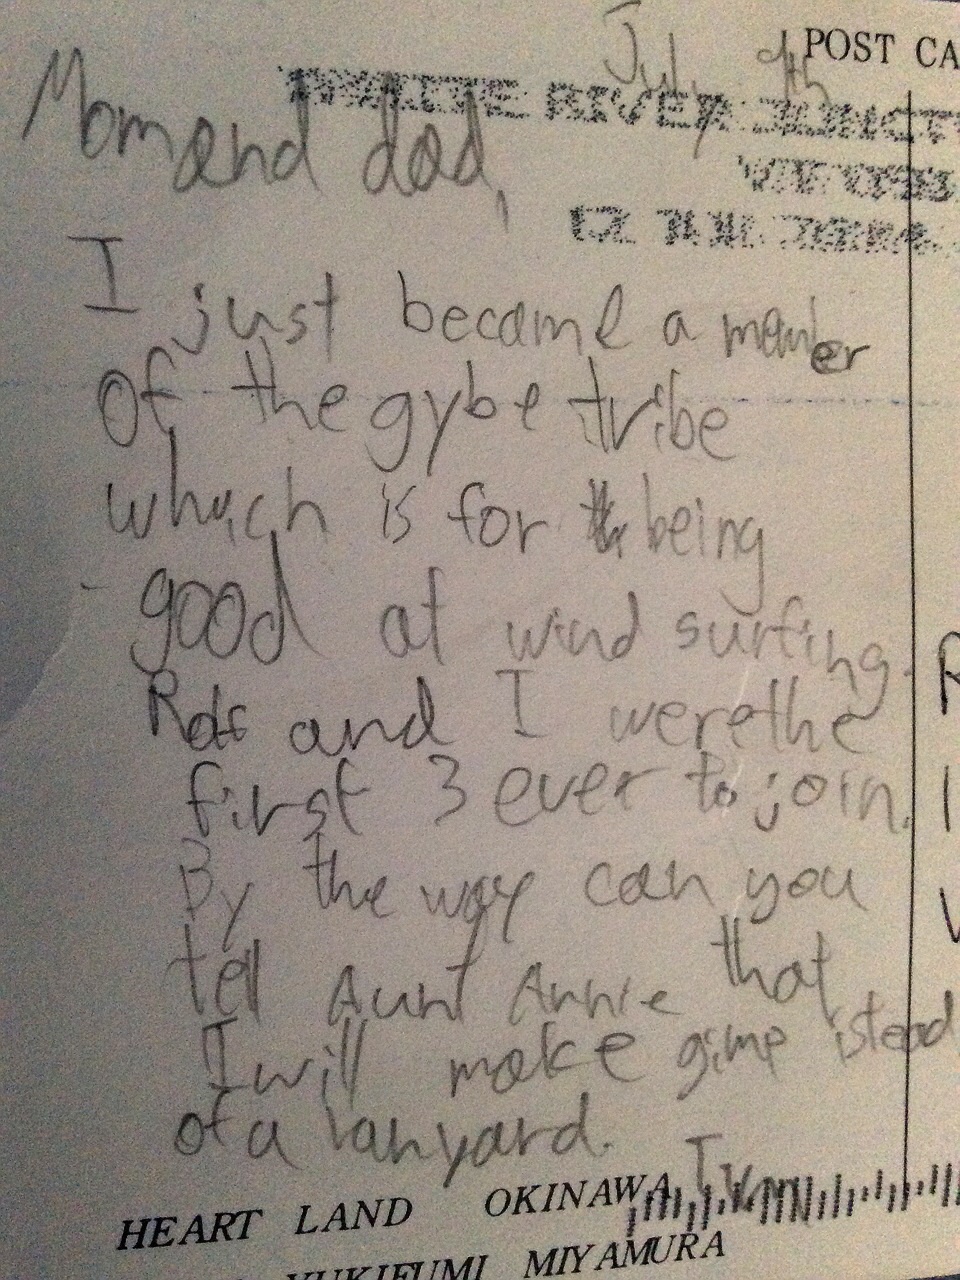 POST CA
July 9th
WHITE RIVER JUNCT
Mom and dad,
I just became a member
of the gybe tribe
which is for being
good at wind surfing.
and I were the
first 3 ever to join.
By the way can you
tell Aunt Annie that
I will make gimp istead
of a lanyard.
HEART LAND OKINAWA
YUKIFUMI MIYAMURA